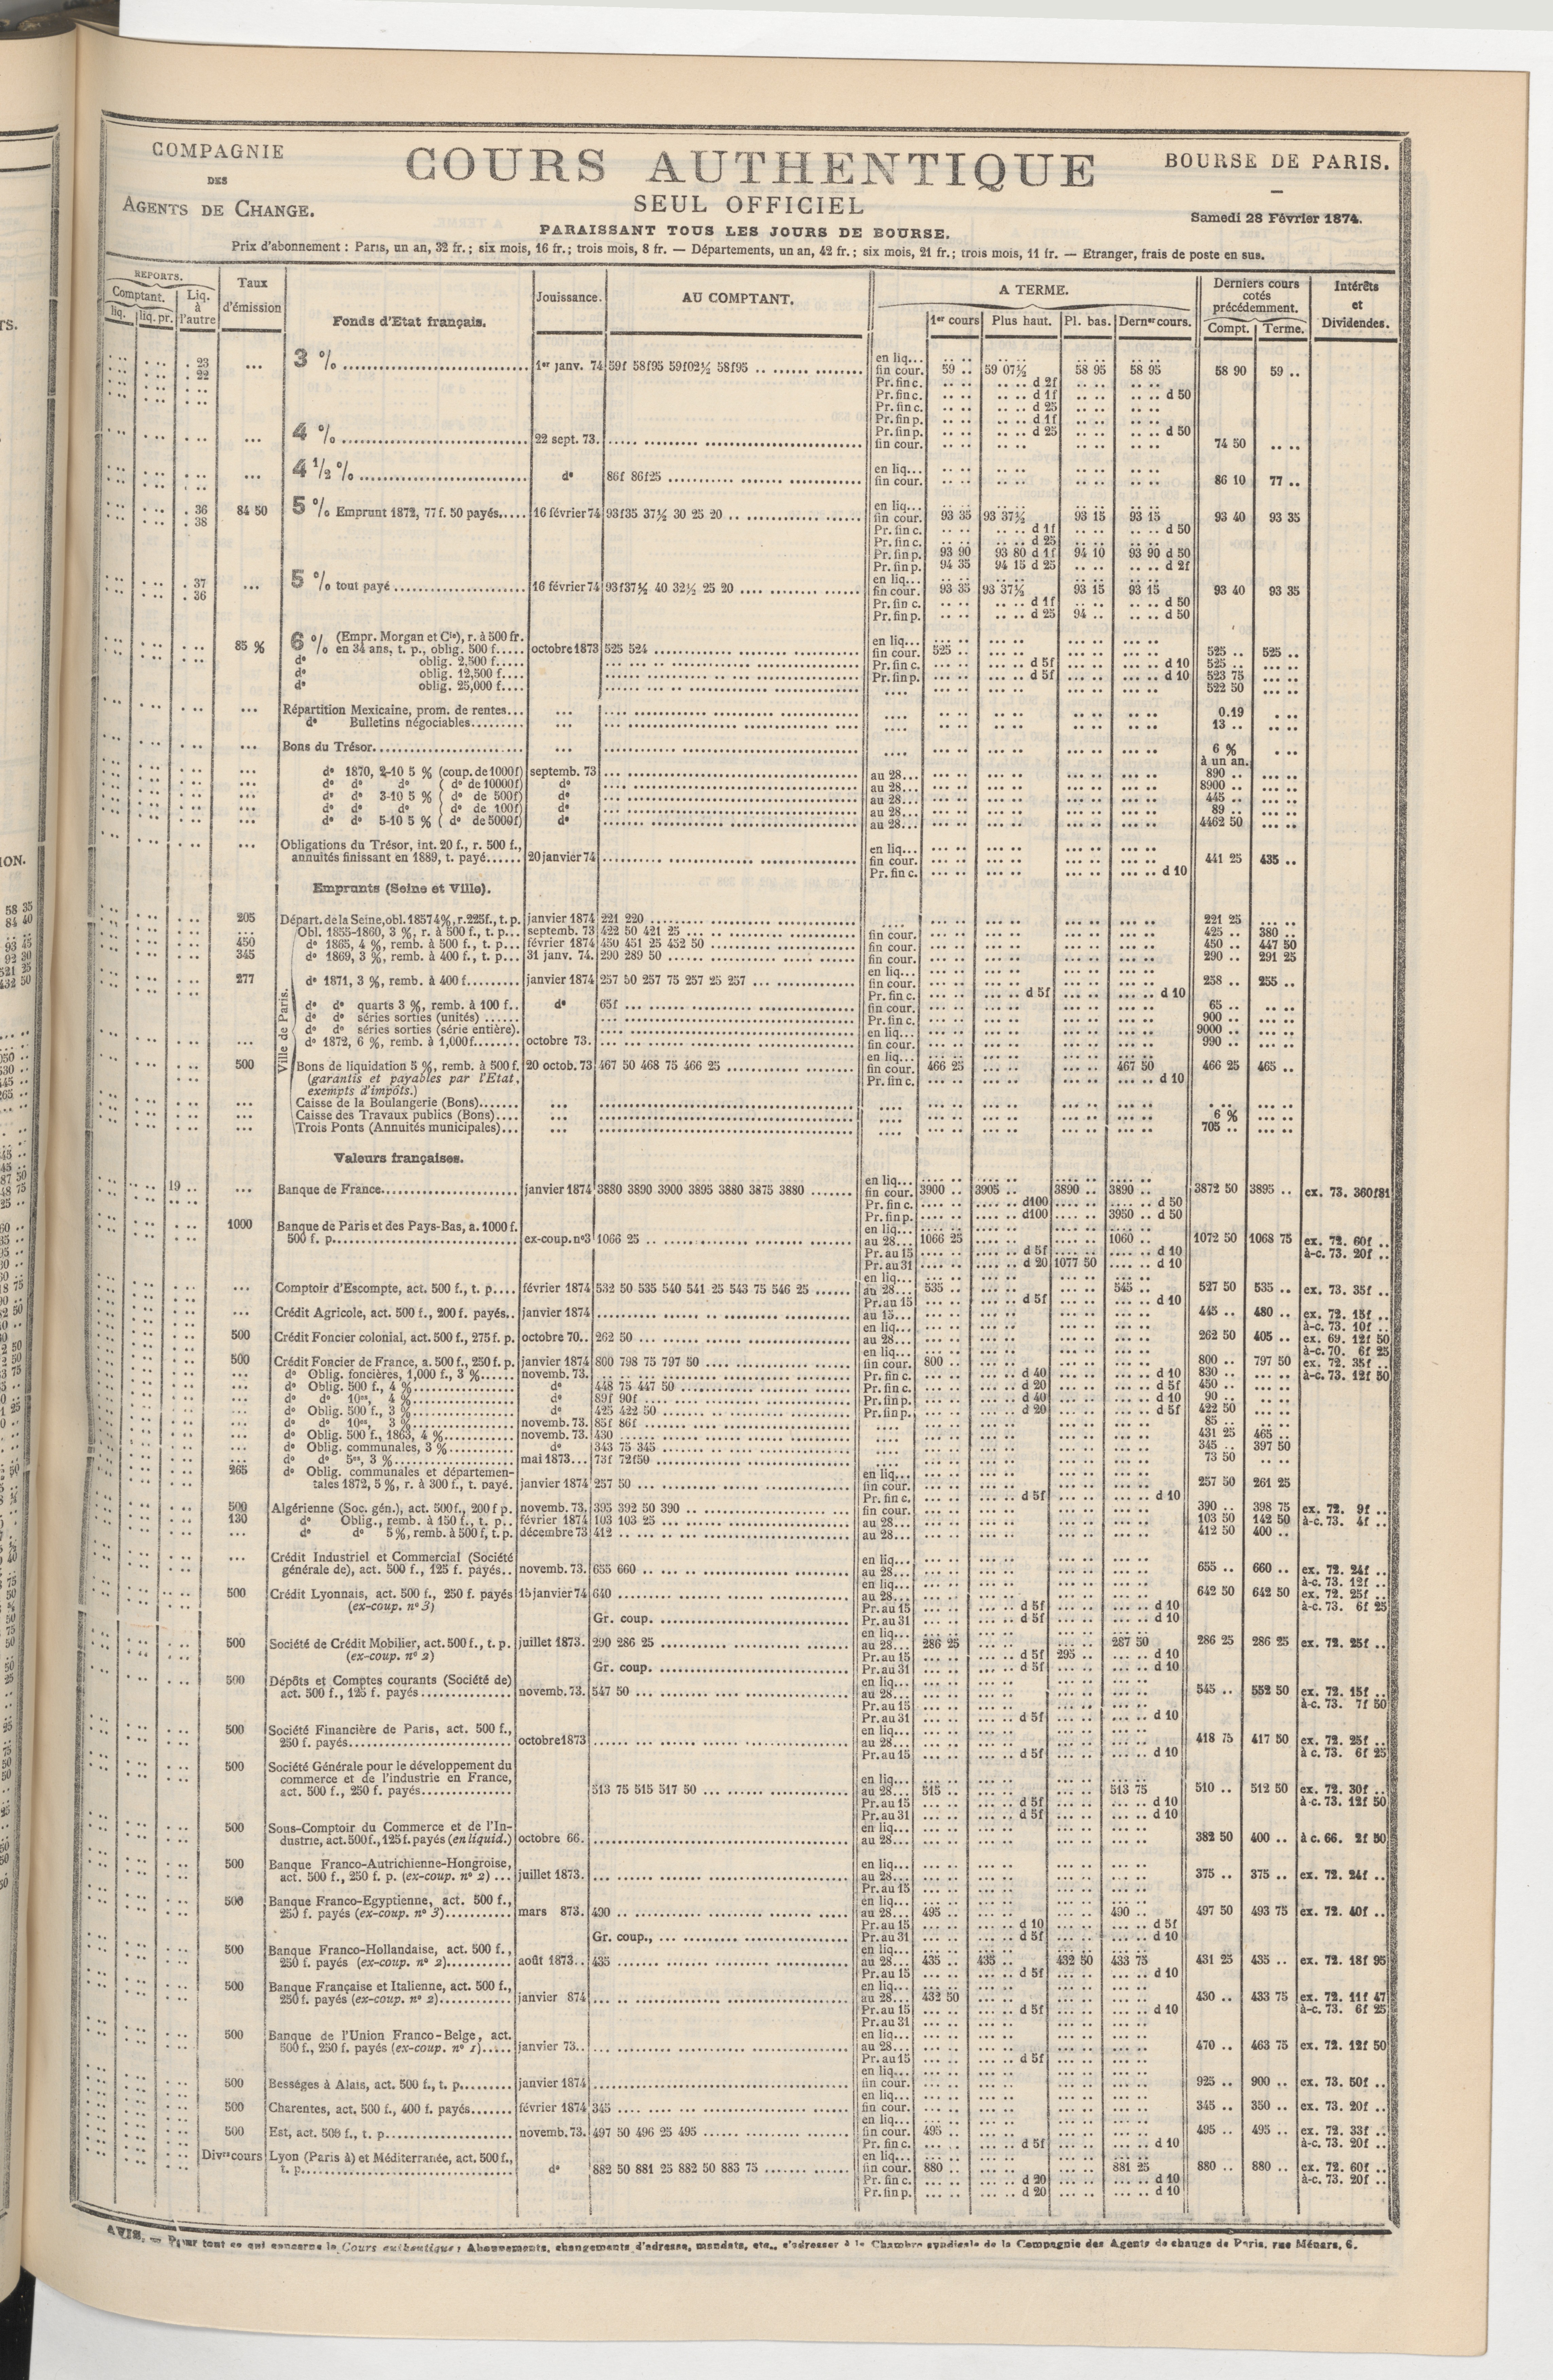 COMPAGNIE
DES
AGENTS DE CHANGE.
COURS AUTHENTIQUE
SEUL OFFICIEL
PARAISSANT TOUS LES JOURS DE BOURSE.
BOURSE DE PARIS.
Samedi 28 Février 1874.
Prix d'abonnement : Paris, un an, 32 fr.; six mois, 16 fr.; trois mois, 8 fr. — Départements, un an, 42 fr.; six mois, 21 fr.; trois mois, 11 fr. — Etranger, frais de poste en sus.
REPORTS. Comptant. liq. liq. pr. Liq. à l'autre
Taux d'émission
Fonds d'Etat français.
Jouissance.
AU COMPTANT.
A TERME. 1er cours Plus haut. Pl. bas. Dernr cours.
Derniers cours cotés précédemment. Compt. Terme.
Intérêts et Dividendes.
. 23 ... 3 % 1er janv. 74 59f 58f95 59f02½ 58f95 en liq...
. 22 fin cour. 59 .. 59 07½ 58 95 58 95 58 90 59 ..
Pr. fin c. d 2f
Pr. fin c. d 1f d 50
Pr. fin c. d 25
Pr. fin p. d 1f
Pr. fin p. d 25 d 50
... 4 % 22 sept. 73. fin cour. 74 50
en liq...
... 4 1/2 % do 86f 86f25 fin cour. 86 10 77 ..
en liq...
. 36 84 50 5 % Emprunt 1872, 77 f. 50 payés..... 16 février 74 93f35 37½ 30 25 20 fin cour. 93 35 93 37½ 93 15 93 15 93 40 93 35
. 38 Pr. fin c. d 1f d 50
Pr. fin c. d 25
Pr. fin p. 93 90 93 80 d 1f 94 10 93 90 d 50
Pr. fin p. 94 35 94 15 d 25 d 2f
en liq...
. 37 ... 5 % tout payé 16 février 74 93f37½ 40 32½ 25 20 fin cour. 93 35 93 37½ 93 15 93 15 93 40 93 35
. 36 Pr. fin c. d 1f d 50
Pr. fin p. d 25 94 .. d 50
6 % (Empr. Morgan et Cie), r. à 500 fr. en liq...
85 % en 34 ans, t. p., oblig. 500 f..... octobre 1873 525 524 fin cour. 525 .. 525 .. 525 ..
do oblig. 2,500 f..... Pr. fin c. d 5f d 10 525 ..
do oblig. 12,500 f.... Pr. fin p. d 5f d 10 523 75
do oblig. 25,000 f.... 522 50
Répartition Mexicaine, prom. de rentes... 0.19
do Bulletins négociables......... 13 ..
Bons du Trésor 6 % à un an.
do 1870, 2-10 5 % (coup. de 1000f) septemb. 73 au 28... 890 ..
do do do ( do de 10000f) do au 28... 8900 ..
do do 3-10 5 % ( do de 500f) do au 28... 445 ..
do do do ( do de 100f) do au 28... 89 ..
do do 5-10 5 % ( do de 5000f) do au 28... 4462 50
Obligations du Trésor, int. 20 f., r. 500 f., en liq...
annuités finissant en 1889, t. payé...... 20 janvier 74 fin cour. 441 25 435 ..
Pr. fin c. d 10
Emprunts (Seine et Ville).
205 Départ. de la Seine, obl. 1857 4%, r. 225f., t. p. janvier 1874 221 220 221 25
Ville de Paris.
... Obl. 1855-1860, 3 %, r. à 500 f., t. p... septemb. 73 422 50 421 25 fin cour. 425 .. 380 ..
450 do 1865, 4 %, remb. à 500 f., t. p... février 1874 450 451 25 452 50 fin cour. 450 .. 447 50
345 do 1869, 3 %, remb. à 400 f., t. p... 31 janv. 74. 290 289 50 fin cour. 290 .. 291 25
en liq...
277 do 1871, 3 %, remb. à 400 f......... janvier 1874 257 50 257 75 257 25 257 fin cour. 258 .. 255 ..
Pr. fin c. d 5f d 10
do do quarts 3 %, remb. à 100 f.. do 65f fin cour. 65 ..
do do séries sorties (unités) Pr. fin c. 900 ..
do do séries sorties (série entière). en liq... 9000 ..
... do 1872, 6 %, remb. à 1,000f........ octobre 73. fin cour. 990 ..
en liq...
500 Bons de liquidation 5 %, remb. à 500 f. 20 octob. 73 467 50 468 75 466 25 fin cour. 466 25 467 50 466 25 465 ..
(garantis et payables par l'Etat, exempts d'impôts.) Pr. fin c. d 10
Caisse de la Boulangerie (Bons).......
Caisse des Travaux publics (Bons).... 6 %
Trois Ponts (Annuités municipales)... 705 ..
Valeurs françaises.
en liq...
19 .. ... Banque de France janvier 1874 3880 3890 3900 3895 3880 3875 3880 fin cour. 3900 .. 3905 .. 3890 .. 3890 .. 3872 50 3895 .. ex. 73. 360f81
Pr. fin c. d100 d 50
Pr. fin p. d100 3950 .. d 50
1000 Banque de Paris et des Pays-Bas, a. 1000 f. en liq...
500 f. p. ex-coup. no3 1066 25 au 28... 1066 25 1060 .. 1072 50 1068 75 ex. 72. 60f ..
Pr. au 15 d 5f d 10 à-c. 73. 20f ..
Pr. au 31 d 20 1077 50 d 10
en liq...
... Comptoir d'Escompte, act. 500 f., t. p.... février 1874 532 50 535 540 541 25 543 75 546 25 au 28... 535 .. 545 .. 527 50 535 .. ex. 73. 35f ..
Pr. au 15 d 5f d 10
... Crédit Agricole, act. 500 f., 200 f. payés.. janvier 1874 au 15... 445 .. 480 .. ex. 72. 15f ..
en liq... à-c. 73. 10f ..
500 Crédit Foncier colonial, act. 500 f., 275 f. p. octobre 70.. 262 50 au 28... 262 50 405 .. ex. 69. 12f 50
en liq... à-c. 70. 6f 25
500 Crédit Foncier de France, a. 500 f., 250 f. p. janvier 1874 800 798 75 797 50 fin cour. 800 .. 800 .. 797 50 ex. 72. 35f ..
do Oblig. foncières, 1,000 f., 3 %...... novemb. 73. Pr. fin c. d 40 d 10 830 .. à-c. 73. 12f 50
do Oblig. 500 f., 4 % do 448 75 447 50 Pr. fin c. d 20 d 5f 450 ..
do do 10es, 4 % do 89f 90f Pr. fin p. d 40 d 10 90 ..
do Oblig. 500 f., 3 % do 425 422 50 Pr. fin p. d 20 d 5f 422 50
do do 10es, 3 % novemb. 73. 85f 86f 85 ..
do Oblig. 500 f., 1863, 4 % novemb. 73. 430 431 25 465 ..
do Oblig. communales, 3 % do 343 75 345 345 .. 397 50
do do 5es, 3 % mai 1873... 73f 72f50 73 50
265 do Oblig. communales et départemen- en liq...
tales 1872, 5 %, r. à 300 f., t. payé. janvier 1874 257 50 fin cour. 257 50 261 25
Pr. fin c. d 5f d 10
500 Algérienne (Soc. gén.), act. 500f., 200 f p. novemb. 73. 395 392 50 390 fin cour. 390 .. 398 75 ex. 72. 9f ..
130 do Oblig., remb. à 150 f., t. p.. février 1874 103 103 25 au 28... 103 50 142 50 à-c. 73. 4f ..
... do do 5 %, remb. à 500 f, t. p. décembre 73 412 au 28... 412 50 400 ..
Crédit Industriel et Commercial (Société en liq...
générale de), act. 500 f., 125 f. payés.. novemb. 73. 655 660 au 28... 655 .. 660 .. ex. 72. 24f ..
en liq... à-c. 73. 12f ..
500 Crédit Lyonnais, act. 500 f., 250 f. payés 15 janvier 74 640 au 28... 642 50 642 50 ex. 72. 25f ..
(ex-coup. no 3) Pr. au 15 d 5f d 10 à-c. 73. 6f 25
Gr. coup. Pr. au 31 d 5f d 10
en liq...
500 Société de Crédit Mobilier, act. 500 f., t. p. juillet 1873. 290 286 25 au 28... 286 25 287 50 286 25 286 25 ex. 72. 25f ..
(ex-coup. no 2) Pr. au 15 d 5f 295 .. d 10
Gr. coup. Pr. au 31 d 5f d 10
500 Dépôts et Comptes courants (Société de) en liq...
act. 500 f., 125 f. payés novemb. 73. 547 50 au 28... 545 .. 552 50 ex. 72. 15f ..
Pr. au 15 à-c. 73. 7f 50
Pr. au 31 d 5f d 10
500 Société Financière de Paris, act. 500 f., en liq...
250 f. payés octobre 1873 au 28... 418 75 417 50 ex. 72. 25f ..
Pr. au 15 d 5f d 10 à c. 73. 6f 25
500 Société Générale pour le développement du
commerce et de l'industrie en France, en liq...
act. 500 f., 250 f. payés 513 75 515 517 50 au 28... 515 .. 513 75 510 .. 512 50 ex. 72. 30f ..
Pr. au 15 d 5f d 10 à-c. 73. 12f 50
Pr. au 31 d 5f d 10
500 Sous-Comptoir du Commerce et de l'In- en liq...
dustrie, act. 500f., 125 f. payés (en liquid.) octobre 66. au 28... 382 50 400 .. à c. 66. 2f 50
500 Banque Franco-Autrichienne-Hongroise, en liq...
act. 500 f., 250 f. p. (ex-coup. no 2) ... juillet 1873. au 28... 375 .. 375 .. ex. 72. 24f ..
Pr. au 15
500 Banque Franco-Egyptienne, act. 500 f., en liq...
250 f. payés (ex-coup. no 3) mars 873. 490 au 28... 495 .. 490 .. 497 50 493 75 ex. 72. 40f ..
Pr. au 15 d 10 d 5f
Gr. coup., Pr. au 31 d 5f d 10
500 Banque Franco-Hollandaise, act. 500 f., en liq...
250 f. payés (ex-coup. no 2) août 1873.. 435 au 28... 435 .. 435 .. 432 50 433 75 431 25 435 .. ex. 72. 18f 95
Pr. au 15 d 5f d 10
500 Banque Française et Italienne, act. 500 f., en liq...
250 f. payés (ex-coup. no 2) janvier 874 au 28... 432 50 430 .. 433 75 ex. 72. 11f 47
Pr. au 15 d 5f d 10 à-c. 73. 6f 25
Pr. au 31
500 Banque de l'Union Franco-Belge, act. en liq...
500 f., 250 f. payés (ex-coup. no 1) janvier 73.. au 28... 470 .. 463 75 ex. 72. 12f 50
Pr. au 15 d 5f
en liq...
500 Bességes à Alais, act. 500 f., t. p. janvier 1874 fin cour. 925 .. 900 .. ex. 73. 50f ..
en liq...
500 Charentes, act. 500 f., 400 f. payés février 1874 345 fin cour. 345 .. 350 .. ex. 73. 20f ..
en liq...
500 Est, act. 500 f., t. p. novemb. 73. 497 50 496 25 495 fin cour. 495 .. 495 .. 495 .. ex. 72. 33f ..
Pr. fin c. d 5f d 10 à-c. 73. 20f ..
Divrs cours Lyon (Paris à) et Méditerranée, act. 500 f., en liq...
t. p. do 882 50 881 25 882 50 883 75 fin cour. 880 .. 881 25 880 .. 880 .. ex. 72. 60f ..
Pr. fin c. d 20 d 10 à-c. 73. 20f ..
Pr. fin p. d 20 d 10
AVIS. — Pour tout ce qui concerne le Cours authentique : Abonnements, changements d'adresse, mandats, etc., s'adresser à la Chambre syndicale de la Compagnie des Agents de change de Paris, rue Ménars, 6.